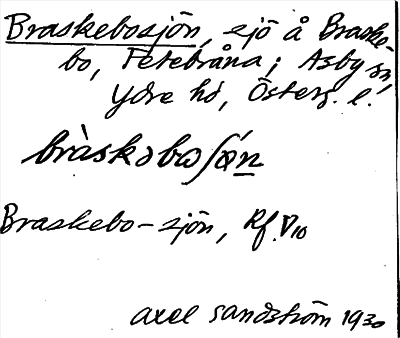 Braskebosjön, sjö å Braske-
bo, Fetebråna; Asby sn,
Ydre hd, Österg. l.
bràskəbωʃǿn
Braskebo-sjön, Rf. V10
Axel Sandström 1930